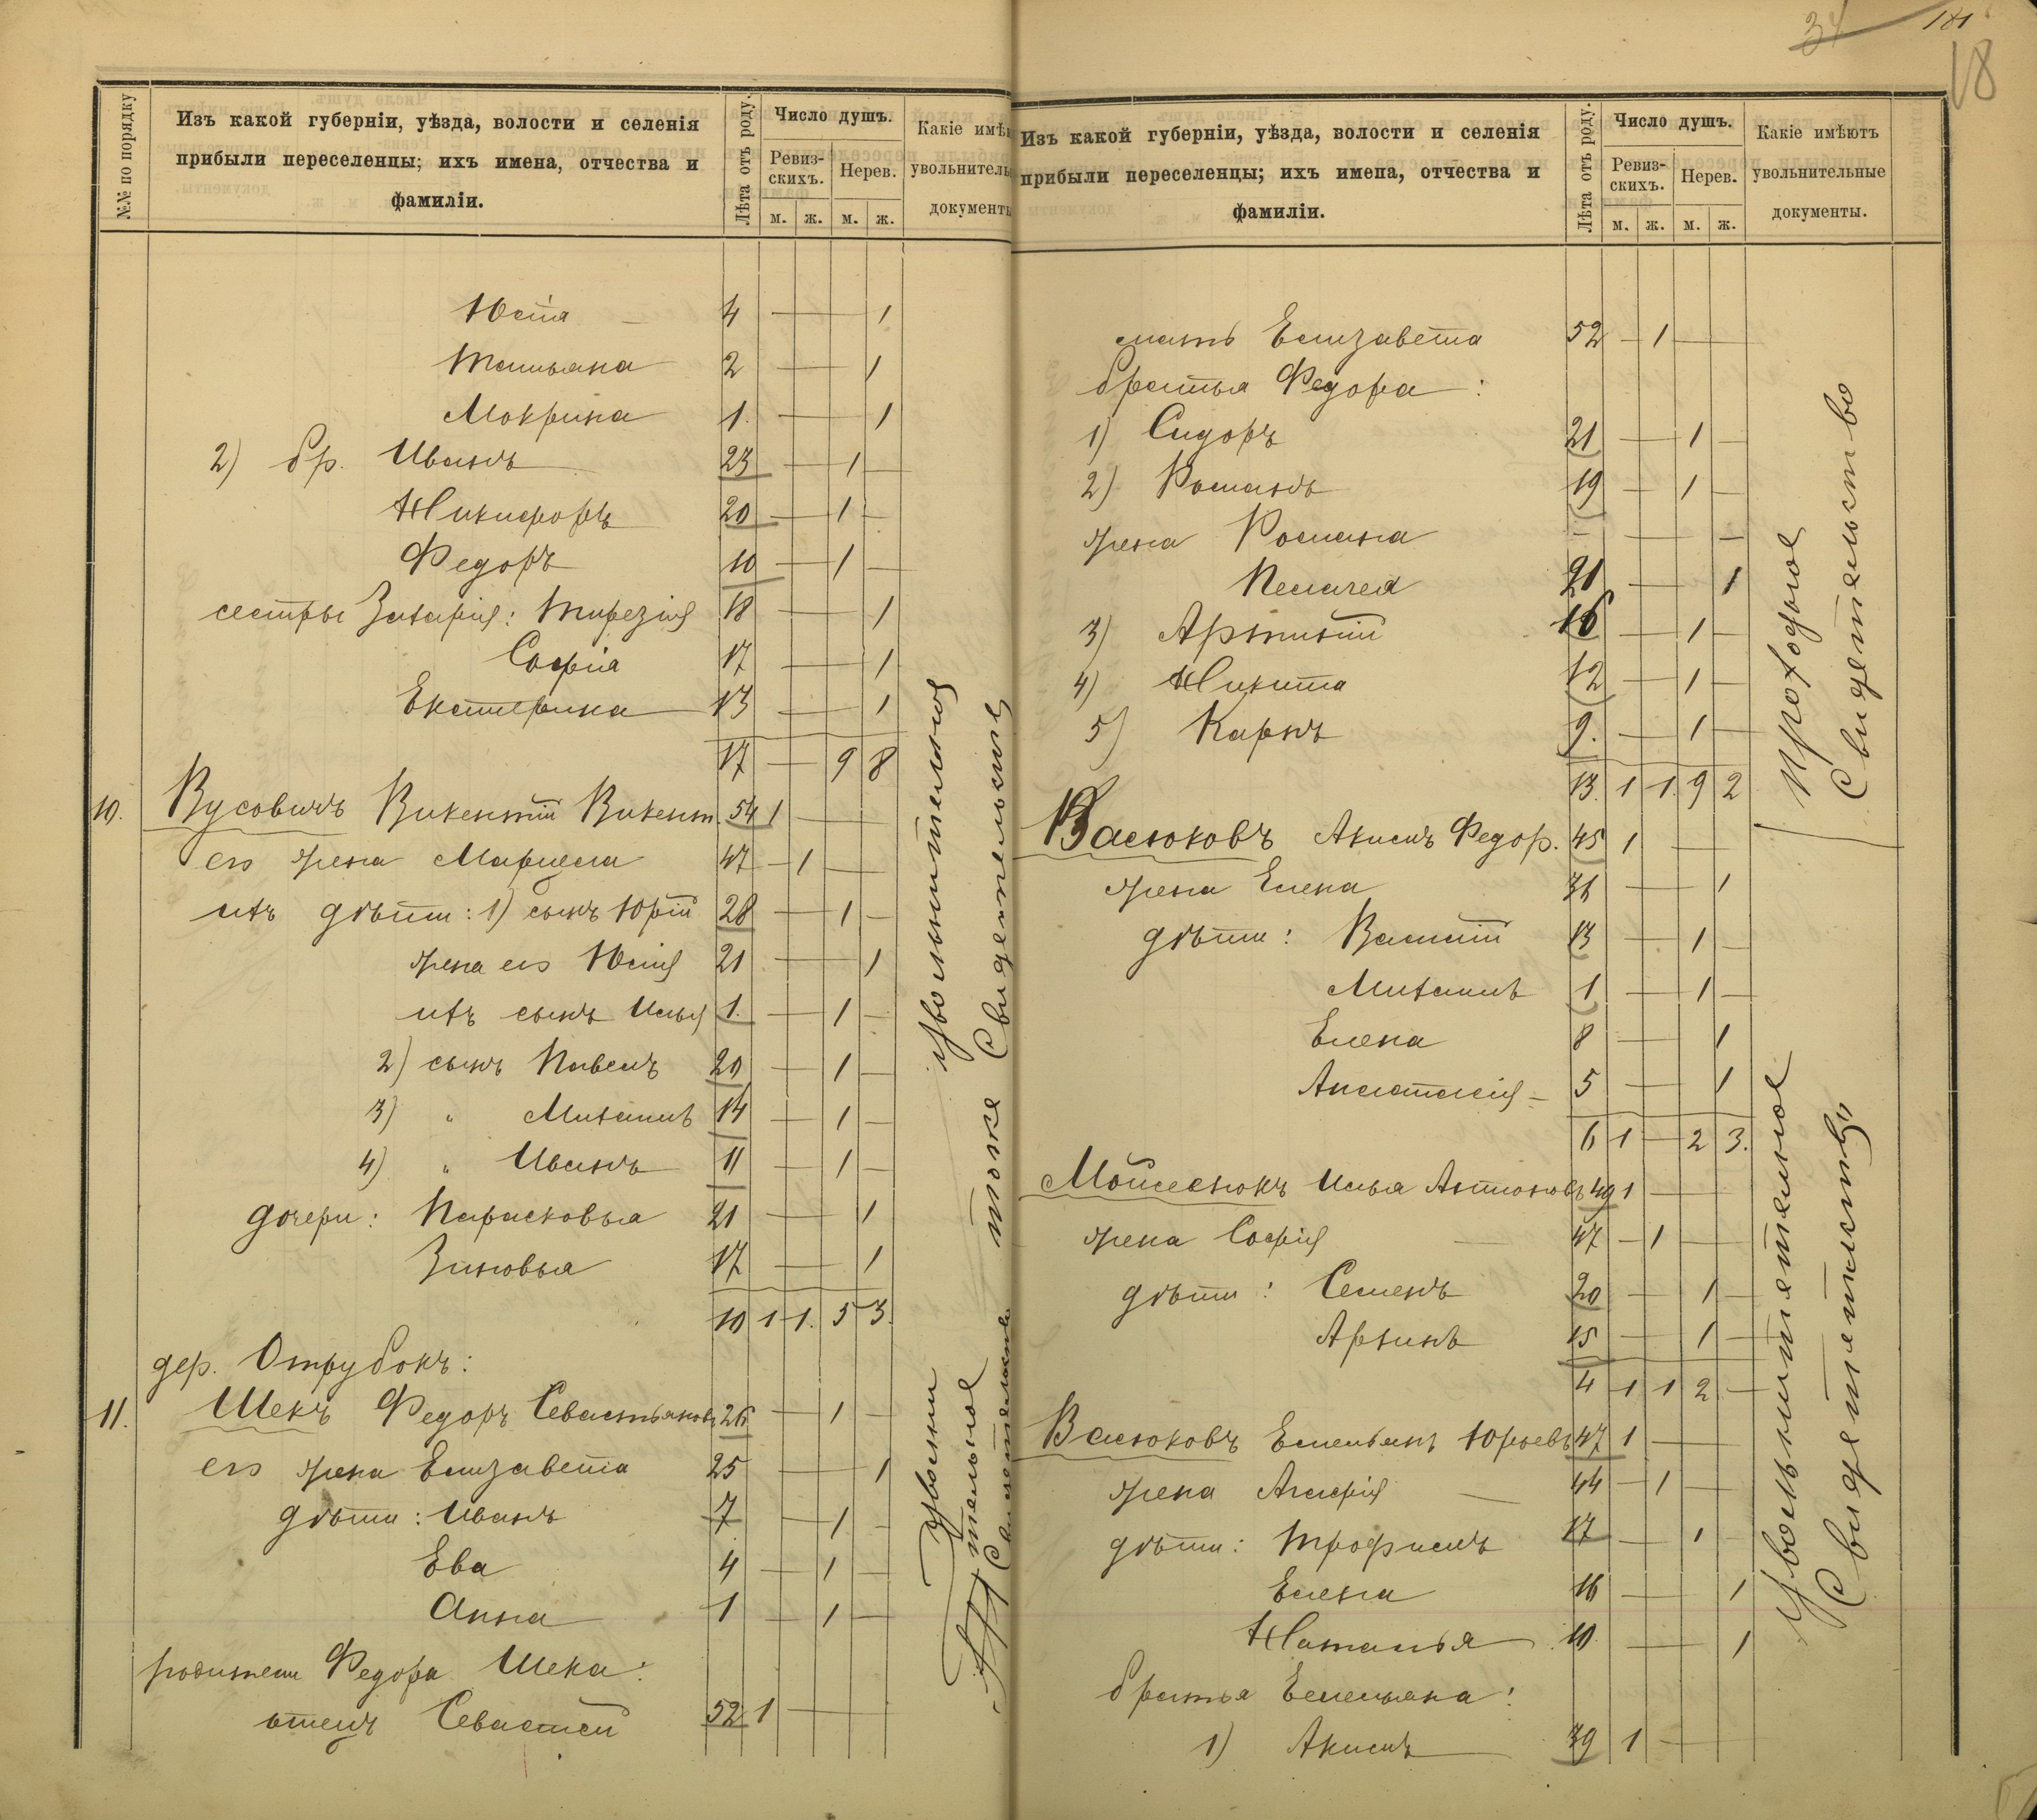 34 181
18
№№ по порядку
Изъ какой губерніи, уѣзда, волости и селенія
прибыли переселенцы; ихъ имена, отчества и
фамиліи.
Лѣта отъ роду.
Число душъ.
Ревиз-
скихъ.
Нерев.
м. ж. м. ж.
Какіе имѣ
увольнитель
документы
Юстія 4 — 1
Татьяна 2 — 1
Макрина 1. — 1
2) бр. Иванъ 23 — 1 —
Никифоръ 20 — 1 —
Федоръ 10 — 1 —
сестры Захарія: Терезія 18 — 1
Софія 17 — 1
Екатерина 13 — 1
17 — 9 8
10. Вусовичъ Викентій Викент. 54 1 —
его жена Марцела 47 — 1 —
ихъ дѣти: 1) сынъ Юрій 28 — 1 —
жена его Юлія 21 — 1
ихъ сынъ Илья 1. — 1 —
2) сынъ Павелъ 20 — 1 —
3) " Михаилъ 14 — 1 —
4) " Иванъ 11 — 1 —
дочери: Парасковья 21 — 1
Зиновья 17 — 1
10 1 1. 5 3.
дер. Отрубокъ:
11. Шекъ Федоръ Севастьяновъ 26 — 1 —
его жена Елизавета 25 — 1
дѣти: Иванъ 7 — 1 —
Ева 4 — 1 —
Анна 1 — 1 —
родители Федора Шека:
отецъ Севастей 52 1 —
увольнительное
тоже Свидетельство
Увольни
тельное
Свидетельство
Изъ какой губерніи, уѣзда, волости и селенія
прибыли переселенцы; ихъ имена, отчества и
фамиліи.
Лѣта отъ роду.
Число душъ.
Ревиз-
скихъ.
Нерев.
м. ж. м. ж.
Какіе имѣютъ
увольнительные
документы.
мать Елизавета 52 — 1 —
братья Федора:
1) Сидоръ 21 — 1 —
2) Романъ 19 — 1 —
жена Романа — — —
Пелагея 21 — 1
3) Артимій 16 — 1 —
4) Никита 12 — 1 —
5) Карпъ 9. — 1 —
13. 1 1. 9 2
Васюковъ Акимъ Федор. 45 1 —
жена Елена 31 — 1
дѣти: Василій 13 — 1 —
Михаилъ 1 — 1 —
Елена 8 — 1
Анастасія 5 — 1
6 1 — 2 3.
Мойсеюкъ Илья Антоновъ 49 1 —
жена Софія 47 — 1 —
дѣти: Семенъ 20 — 1 —
Архипъ 15 — 1 —
4 1 1 2 —
Васюковъ Емельянъ Юрьевъ 47 1 —
жена Агафія 44 — 1 —
дѣти: Трофимъ 17 — 1
Елена 16 — 1
Наталья 10. — 1
братья Емельяна:
1) Акимъ 39 1 —
проходное
Свидетельство
увольнительное
Свидетельство